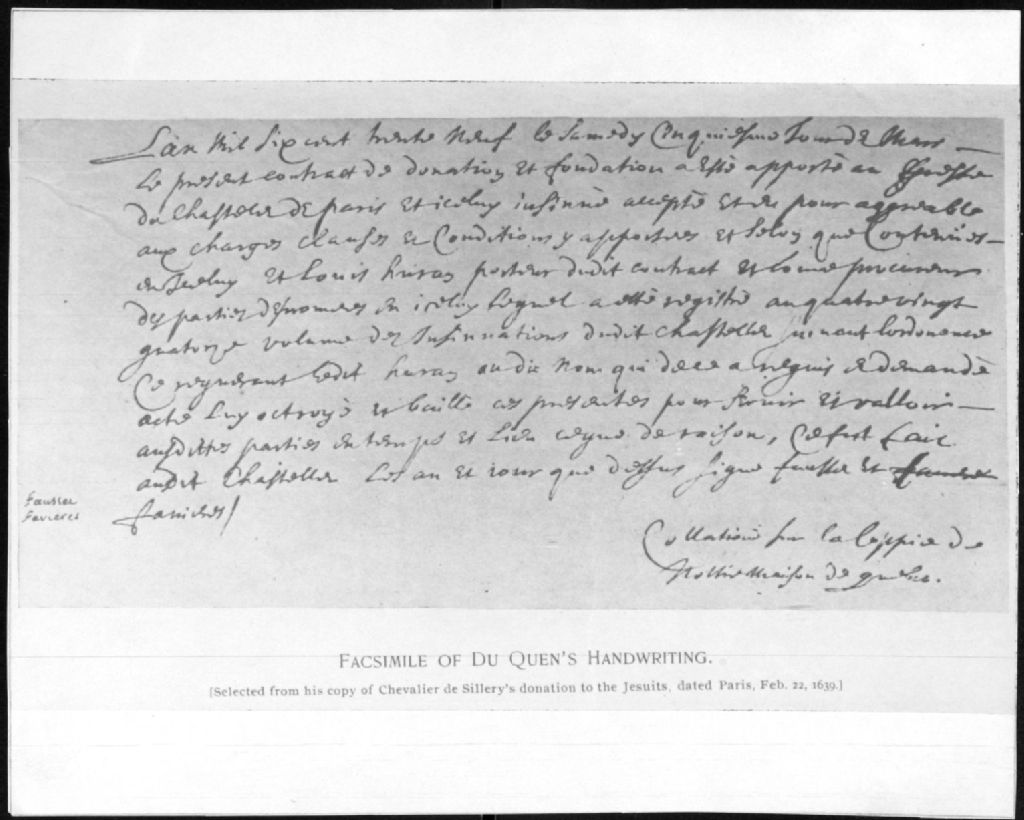 Lan Mil Six cent trente Neuf le Samedy Cinquiesme Jour de Mars
Le present contract de donation et fondation a esté apporté au Greffe
du Chastelet de paris et iceluy insinué accepté et eu pour aggreable
aux charges clauses et Conditions y apposées et selon que Contenües
en Iceluy et Louis huran porteur dudit contract et comme procureur
des parties desnomées en iceluy Lequel a esté registré au quatre vingt
quatorze volume des Insinuations dudit Chastellet suivant lordonance
Ce requerant Ledit huran audit Nom qui de ce a requis et demandé
acte Luy octroyé et baillé ces presentes pour servir et valloir
ausdittes parties en temps et Lieu ce que de raison, Ce fut fait
audit Chastellet Les an et iour que dessus signé fausse et
favieres /
Fausser
Favieres
Collationé sur la coppie de
Nostre Maison de quebec.
FACSIMILE OF DU QUEN'S HANDWRITING.
[Selected from his copy of Chevalier de Sillery's donation to the Jesuits, dated Paris, Feb. 22, 1639.]